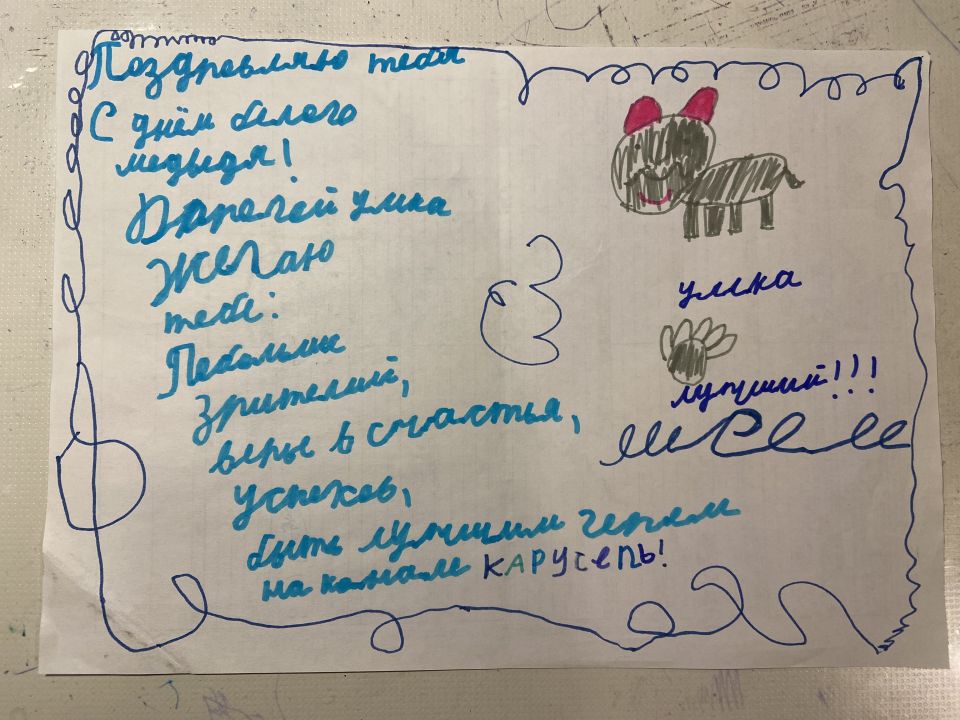 Поздровляю тебя
С днём белого
медьдя!
Дарогой умка
Желаю
тебе:
Побольше
зрителий,
верье в счастья,
успехов,
быть лутшим героем
на канале КАРУСЕЛЬ!
умка
лутший!!!